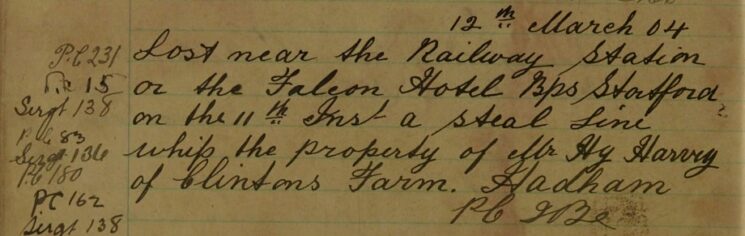 12th March 04
P.C 231
Lost near the Railway Station
P.C 15
or the Falcon Hotel Bps Stortford
Sergt 138
on the 11th Inst a steal Line
P.C 83
whip the property of Mr Hy Harvey
Sergt 136
P.C 180
of Clintons Farm. Hadham
PC 162
P.C
Sergt 138